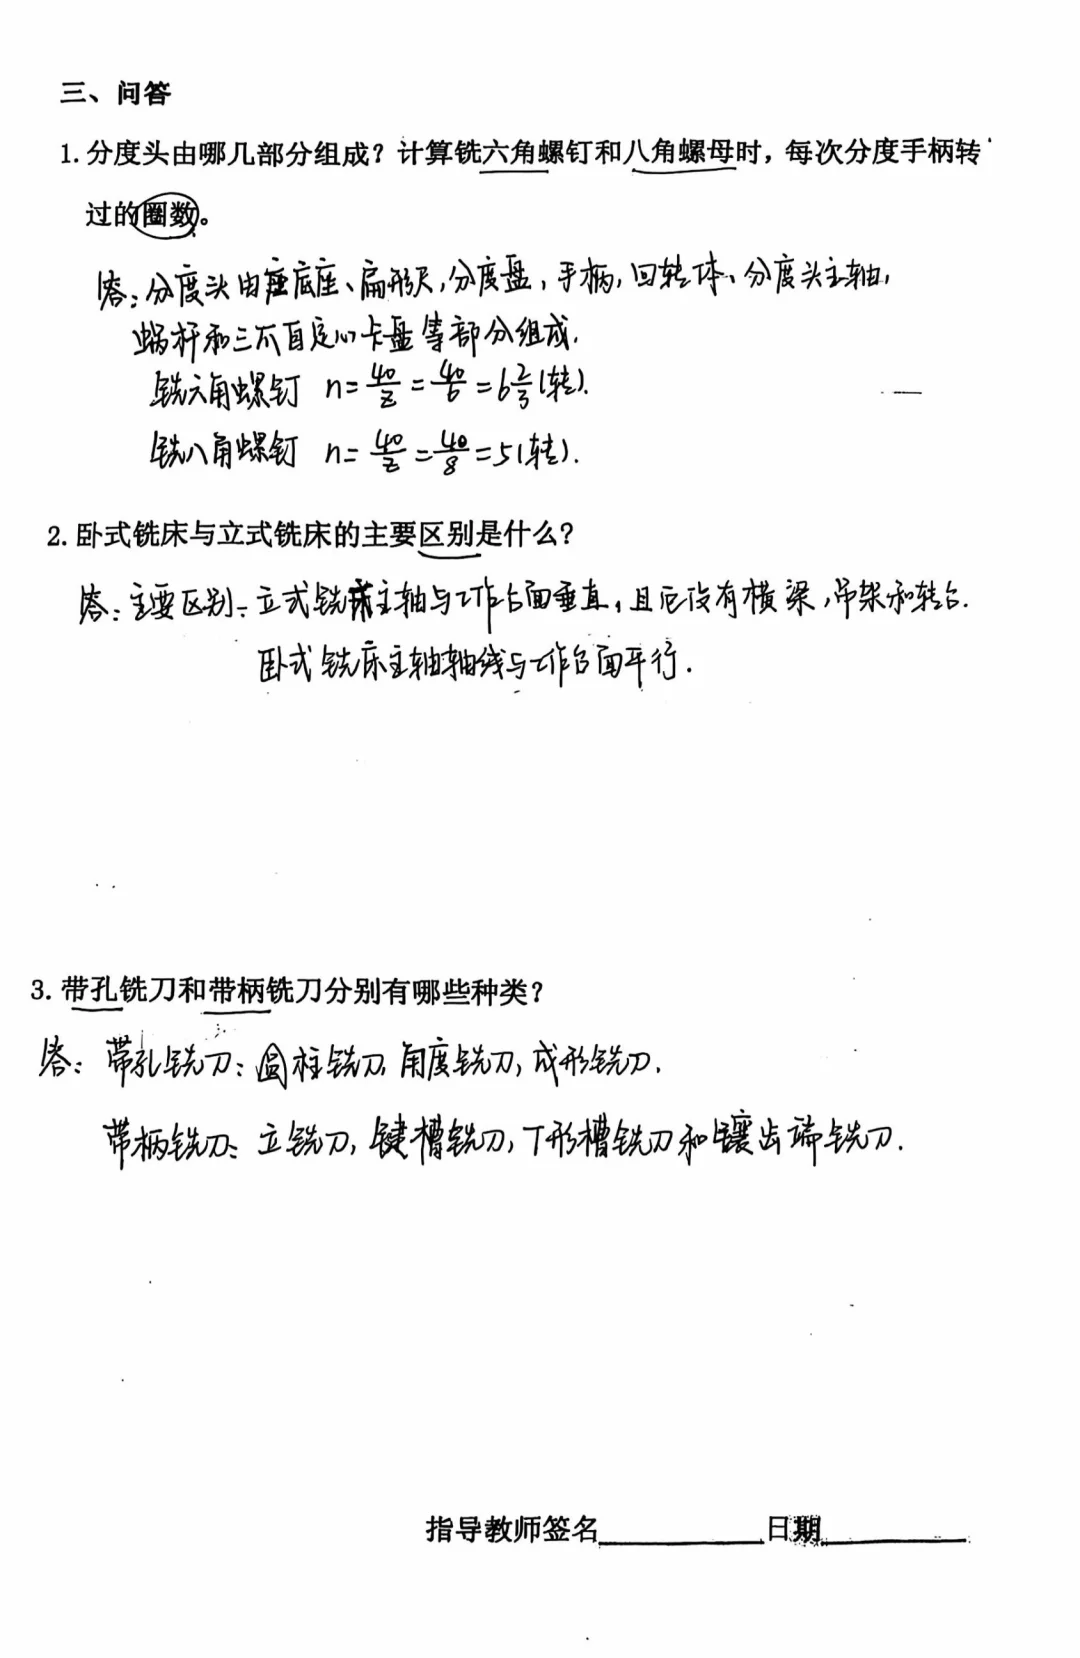 三、问答
1. 分度头由哪几部分组成？计算铣六角螺钉和八角螺母时，每次分度手柄转
过的圈数。
答：分度头由底座、扇形尺，分度盘，手柄，回转体、分度头主轴，
蜗杆和三爪自定心卡盘等部分组成.
铣六角螺钉 n=40/z=40/6=6 2/3(转).
铣八角螺钉 n=40/z=40/8=5(转).
2. 卧式铣床与立式铣床的主要区别是什么？
答：主要区别：立式铣床主轴与工作台面垂直，且它没有横梁，吊架和转台.
卧式铣床主轴轴线与工作台面平行.
3. 带孔铣刀和带柄铣刀分别有哪些种类？
答：带孔铣刀：圆柱铣刀，角度铣刀，成形铣刀.
带柄铣刀：立铣刀，键槽铣刀，T形槽铣刀和镶齿端铣刀.
指导教师签名 日期